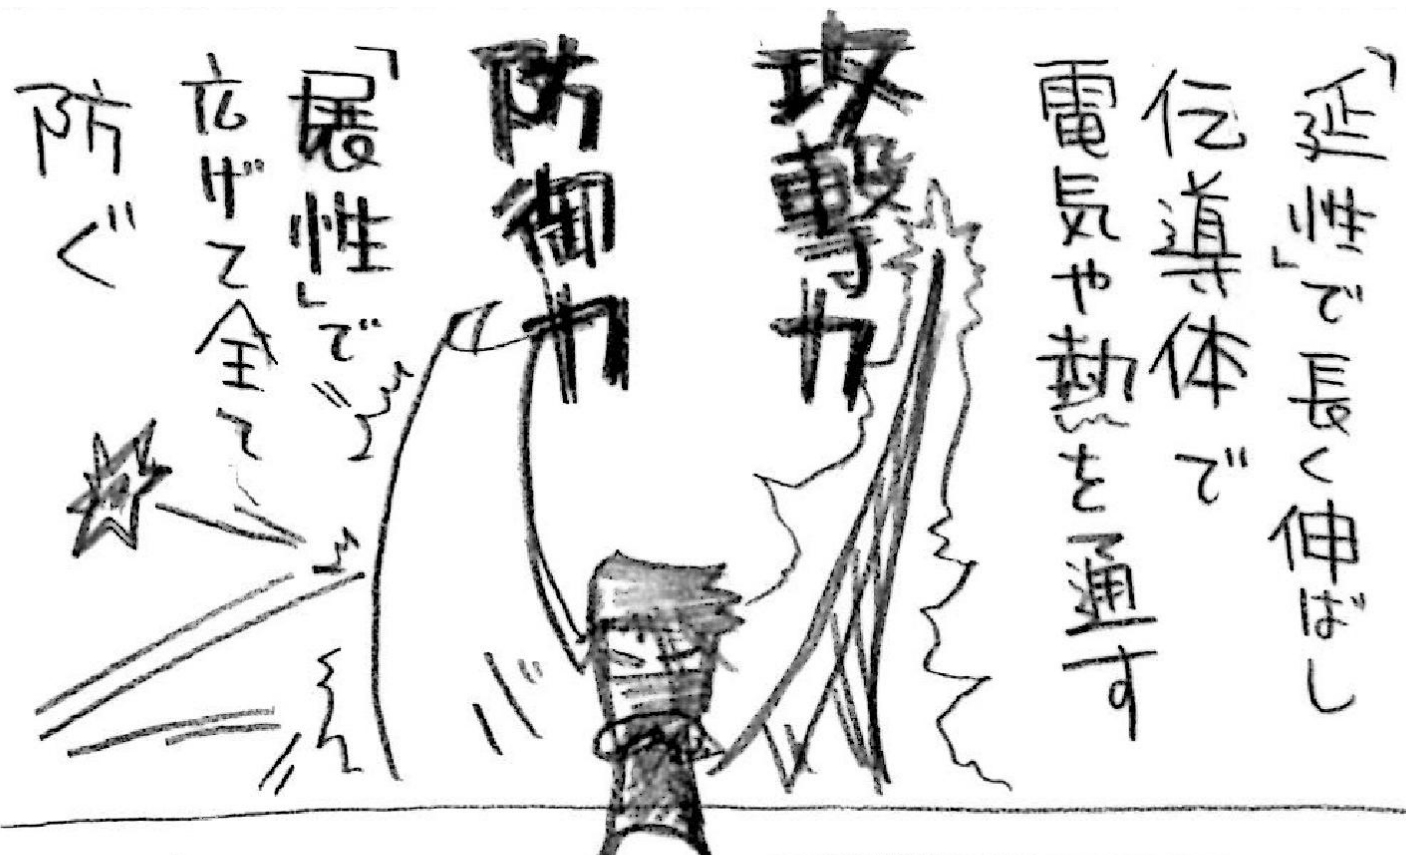 「延性」で長く伸ばし
伝導体で
電気や熱を通す
攻撃力
防御力
「展性」で
広げて全て
防ぐ